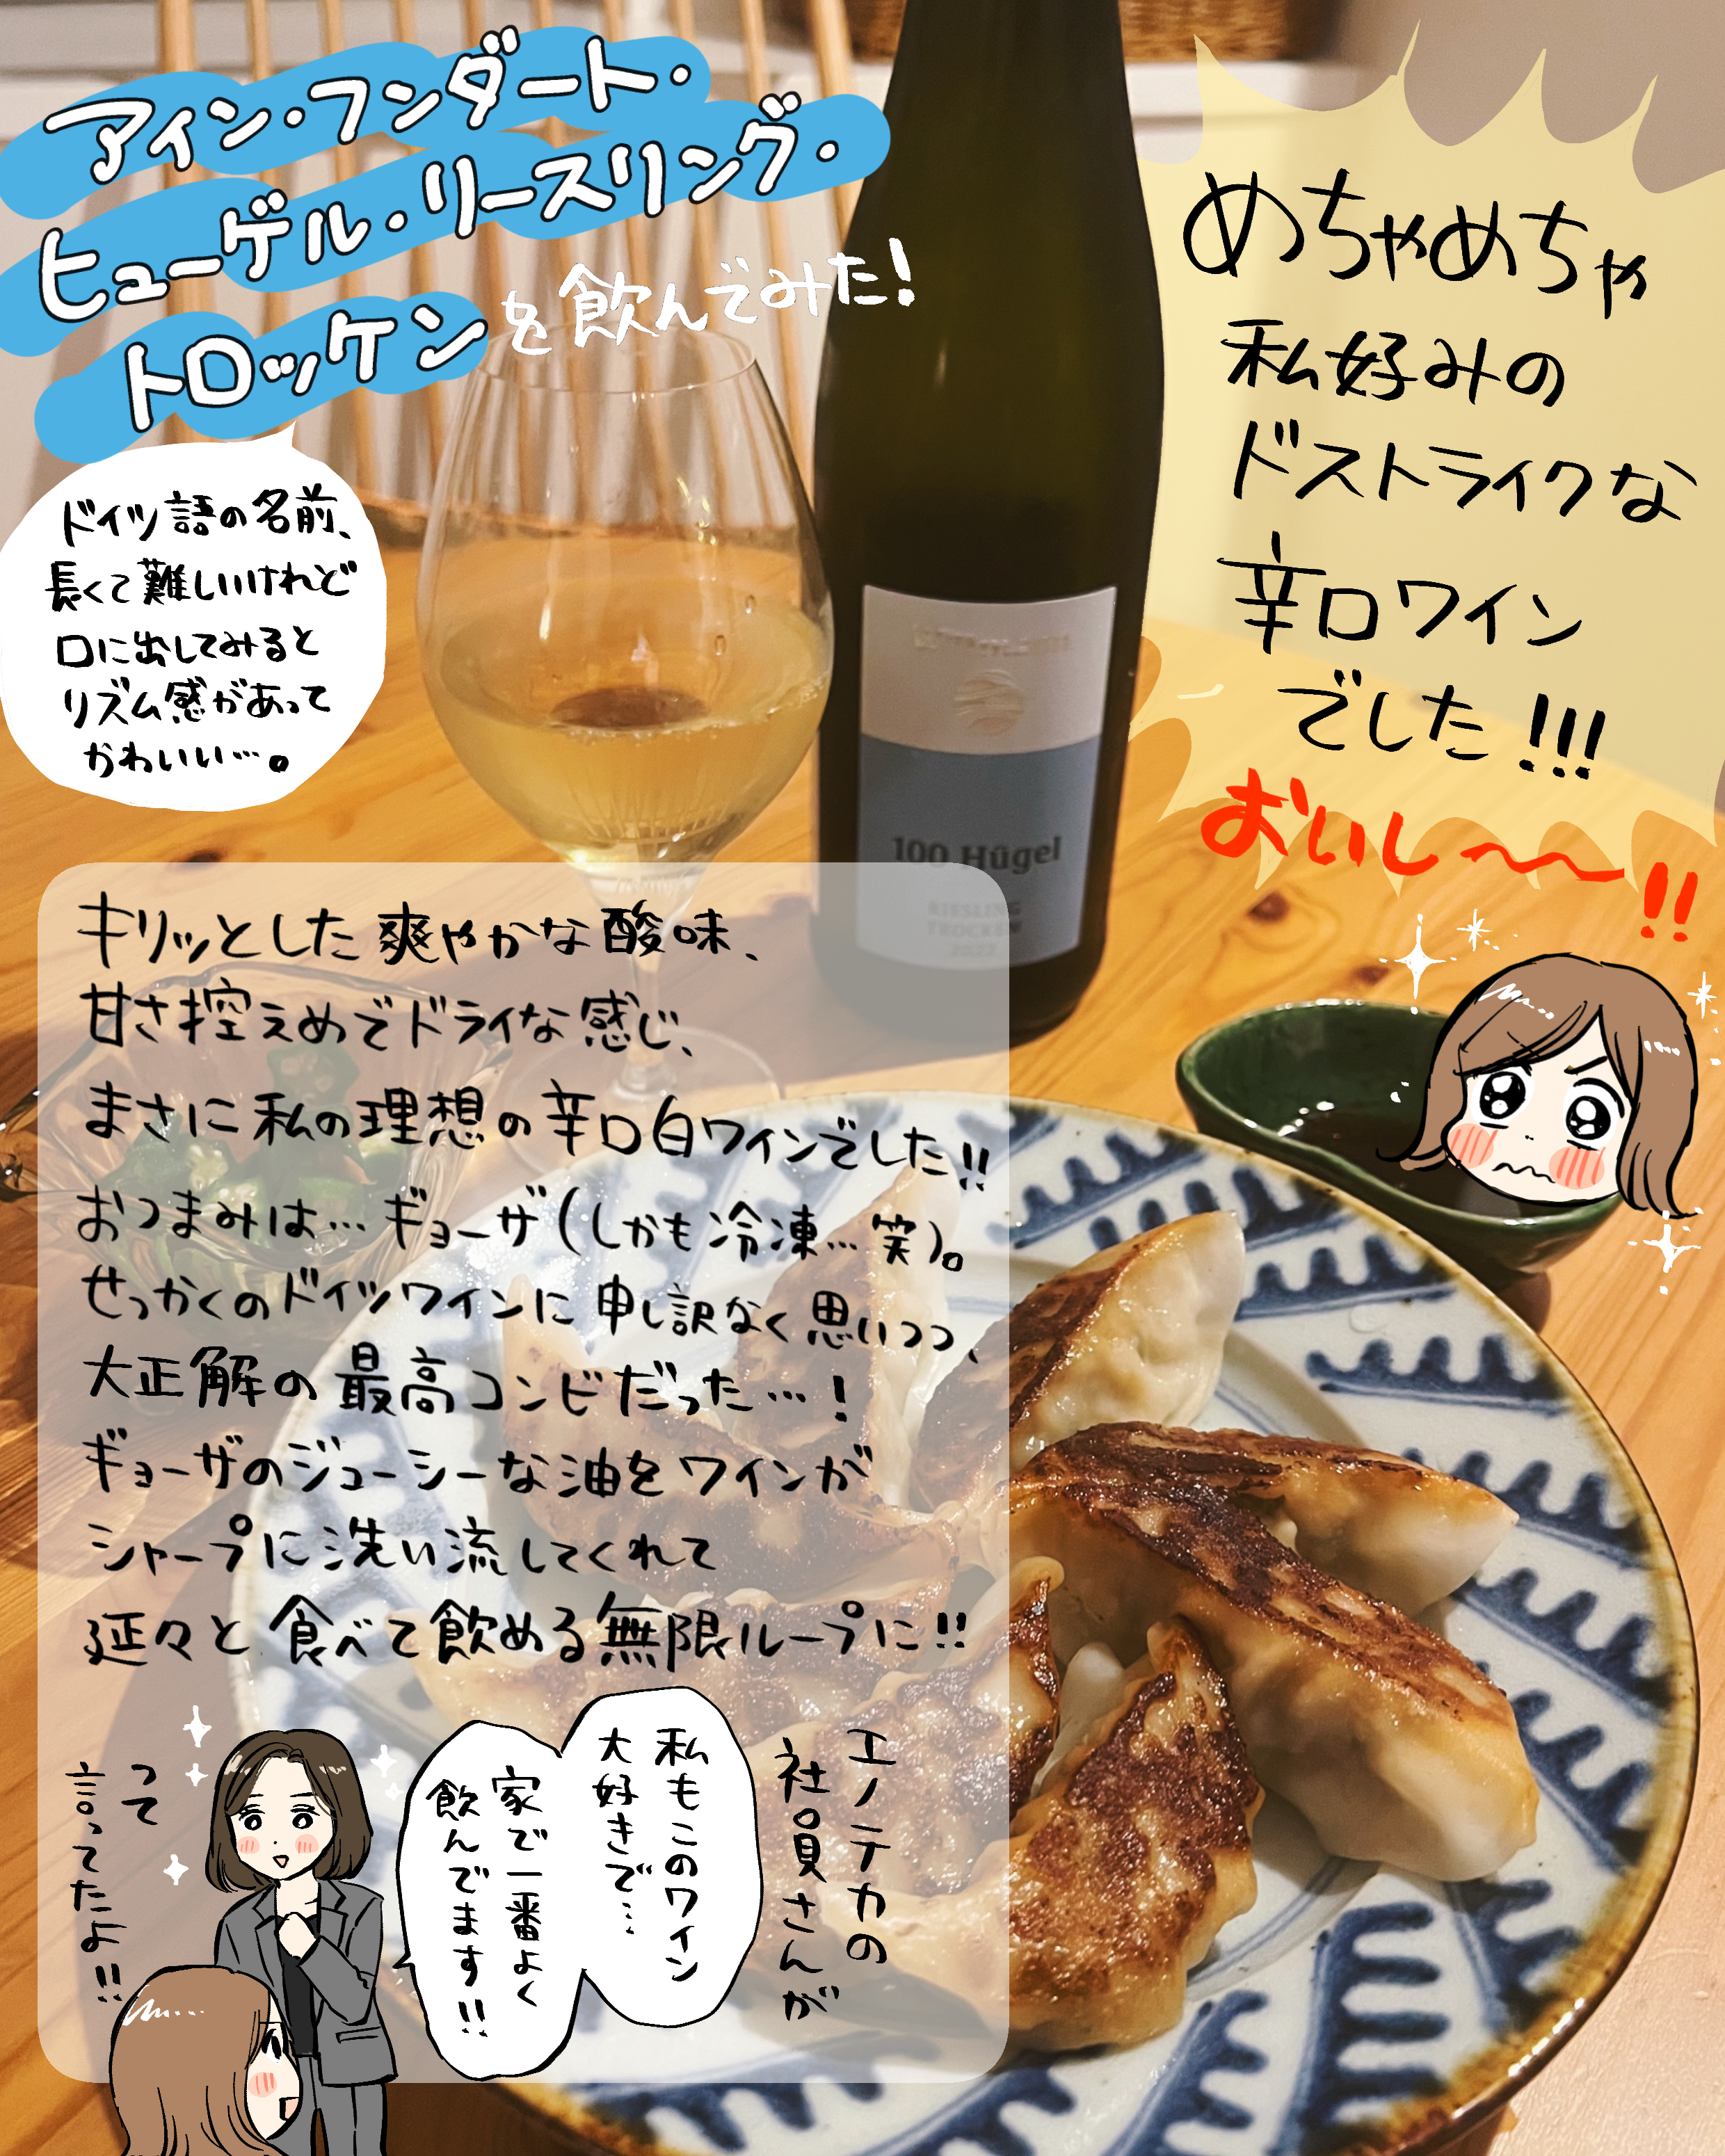 アイン・フンダート・
ヒューゲル・リースリング・
トロッケンを飲んでみた!
ドイツ語の名前、
長くて難しいけれど
口に出してみると
リズム感があって
かわいい…。
めちゃめちゃ
私好みの
ドストライクな
辛口ワイン
でした!!!
おいし〜〜!!
100 Hügel
RIESLING
TROCKEN
2023
キリッとした爽やかな酸味、
甘さ控えめでドライな感じ、
まさに私の理想の辛口白ワインでした!!
おつまみは…ギョーザ(しかも冷凍…笑)。
せっかくのドイツワインに申し訳なく思いつつ、
大正解の最高コンビだった…!
ギョーザのジューシーな油をワインが
シャープに洗い流してくれて
延々と食べて飲める無限ループに!!
エノテカの
社員さんが
私もこのワイン
大好きで…
家で一番よく
飲んでます!!
って
言ってたよ!!